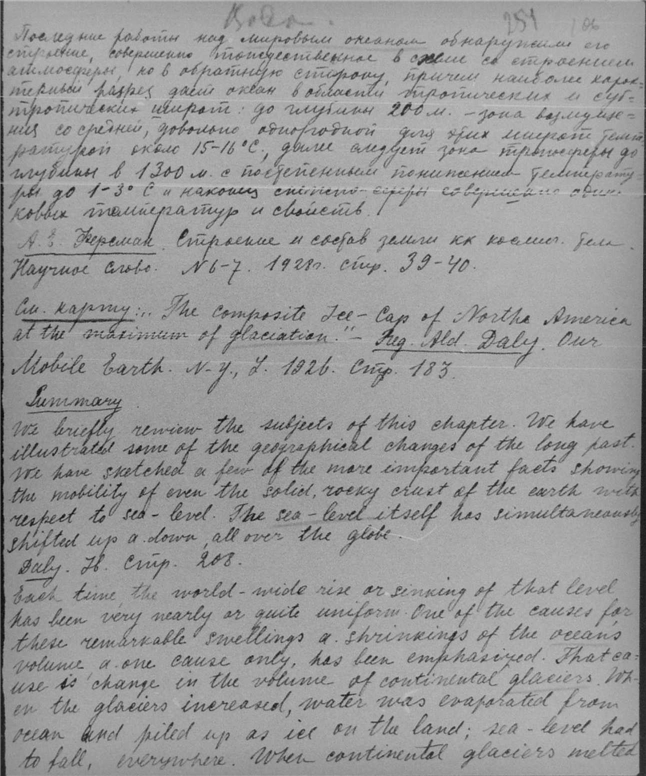 Вода.
251 106
Последние работы над мировым океаном обнаружили его
строение, совершенно тождественное в схеме со строением
атмосферы, но в обратную сторону, причем наиболее харак-
терный разрез дает океан в области тропических и суб-
тропических широт: до глубины 200 м. – зона возмуще-
ния со средней, довольно однородной для этих широт темпе
ратурой около 15-16°C, далее следует зона тропосферы до
глубины в 1300 м. с постепенным понижением температу-
ры до 1-3° C и наконец совершенно один
ковых температур и свойств.
А. Е. Ферсман. Строение и состав земли кк космич. тела.
Научное Слово. N6-7. 1928г. стр. 39-40.
См. карту: „The composite Ice-Cap of Northe America
at the maximum of glaciation." – Reg. Ald. Daly. Our
Mobile Earth. N-Y., L. 1926. Стр. 183.
Summary
We briefly rewiew the subjects of this chapter. We have
illustrated some of the geographical changes of the long past.
We have sketched a few of the more important facts showing
the mobility of even the solid, rocky crust of the earth with
respect to sea-level. The sea-level itself has simultaneously
shifted up a. down, all over the globe.
Daly. Ib. Стр. 208.
Each time the world-wide rise or sinking of that level
has been very nearly or quite uniform. One of the causes for
these remarkable swellings a. shrinkings of the oceans
volume a. one cause only, has been emphasized. That ca-
use is change in the volume of continental glaciers. Wh-
en the glaciers increased, water was evaporated from
ocean and piled up as ice on the land; sea-level had
to fall, everywhere. When continental glaciers melted